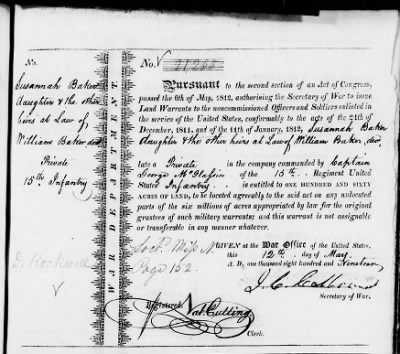 No.
Susannah Baker
daughter & the other
heirs at Law of
William Baker decd
Private
15th Infantry
J. Rockwell
WAR DEPARTMENT
No.
Pursuant to the second section of an Act of Congress,
passed the 6th of May, 1812, authorising the Secretary of War to issue
Land Warrants to the noncommissioned Officers and Soldiers enlisted in
the service of the United States, conformably to the acts of the 24th of
December, 1811, and of the 11th of January, 1812, Susannah Baker
daughter & the other heirs at Law of William Baker, decd,
late a Private in the company commanded by Captain
George of the 15th Regiment United
States Infantry is entitled to ONE HUNDRED AND SIXTY
ACRES OF LAND, to be located agreeably to the said act on any unlocated
parts of the six millions of acres appropriated by law for the original
grantees of such military warrants; and this warrant is not assignable
or transferable in any manner whatever.
GIVEN at the War Office of the United States,
this 12th day of May
A. D. one thousand eight hundred and Nineteen
Page 152
J. C. Calhoun
Secretary of War.
Registered
Nat. Cutting
Clerk.